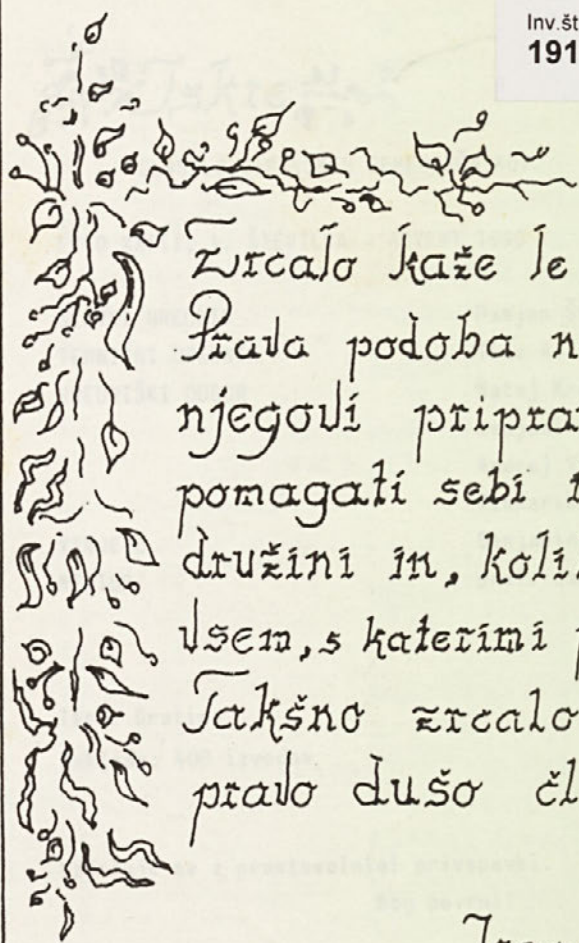 Inv.št
191
Zrcalo kaže le
Prava podoba n
njegovi pripra
pomagati sebi
družini in, koli
vsem, s katerimi p
Takšno zrcalo
pravo dušo čl